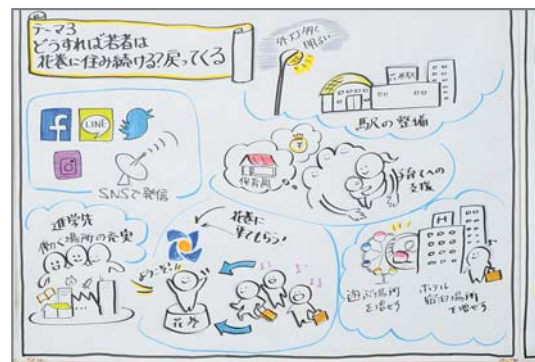 テーマ3
どうすれば若者は
花巻に住み続ける?戻ってくる
外灯多く
明るい
花巻駅
駅の整備
f
LINE
SNSで発信
保育園
子育てへの
支援
進学先
働く場所の充実
花巻に
来てもらう!
ようこそ!
花巻
H
遊ぶ場所
を増やす
ホテル
宿泊場所
を増やす